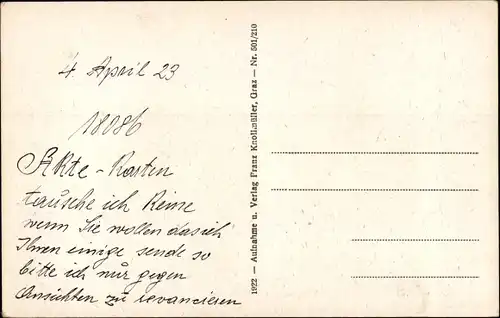 4. April 23
18086
Akte-Karten
tausche ich Keine
wenn Sie wollen das ich
Ihnen einige sende so
bitte ich nur gegen
Ansichten zu revancieren
1922 — Aufnahme u. Verlag Franz Knollmüller, Graz — Nr. 501/210